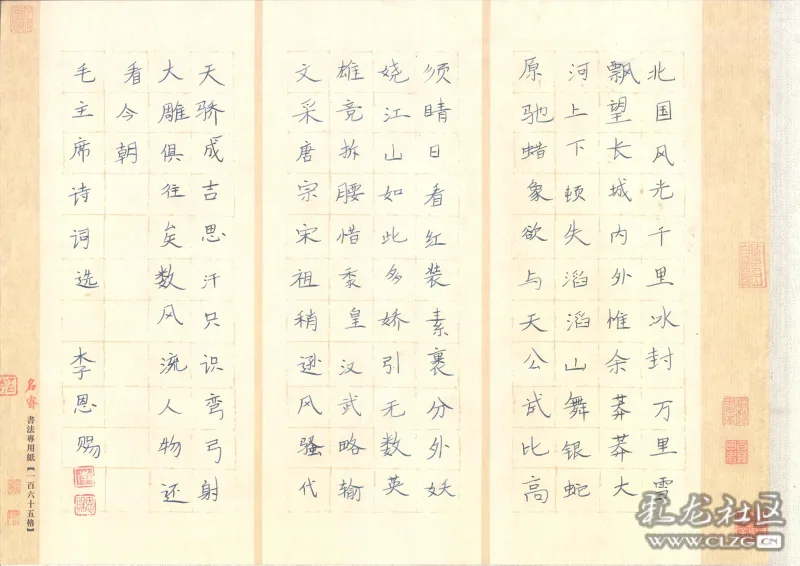 北国风光千里冰封万里雪
飘望长城内外惟余莽莽大
河上下顿失滔滔山舞银蛇
原驰蜡象欲与天公试比高
须晴日看红装素裹分外妖
娆江山如此多娇引无数英
雄竞折腰惜秦皇汉武略输
文采唐宗宋祖稍逊风骚代
天骄成吉思汗只识弯弓射
大雕俱往矣数风流人物还
看今朝
毛主席诗词选 李恩赐
書法專用紙【一百六十五格】
龙社区
WWW.CLZG.CN